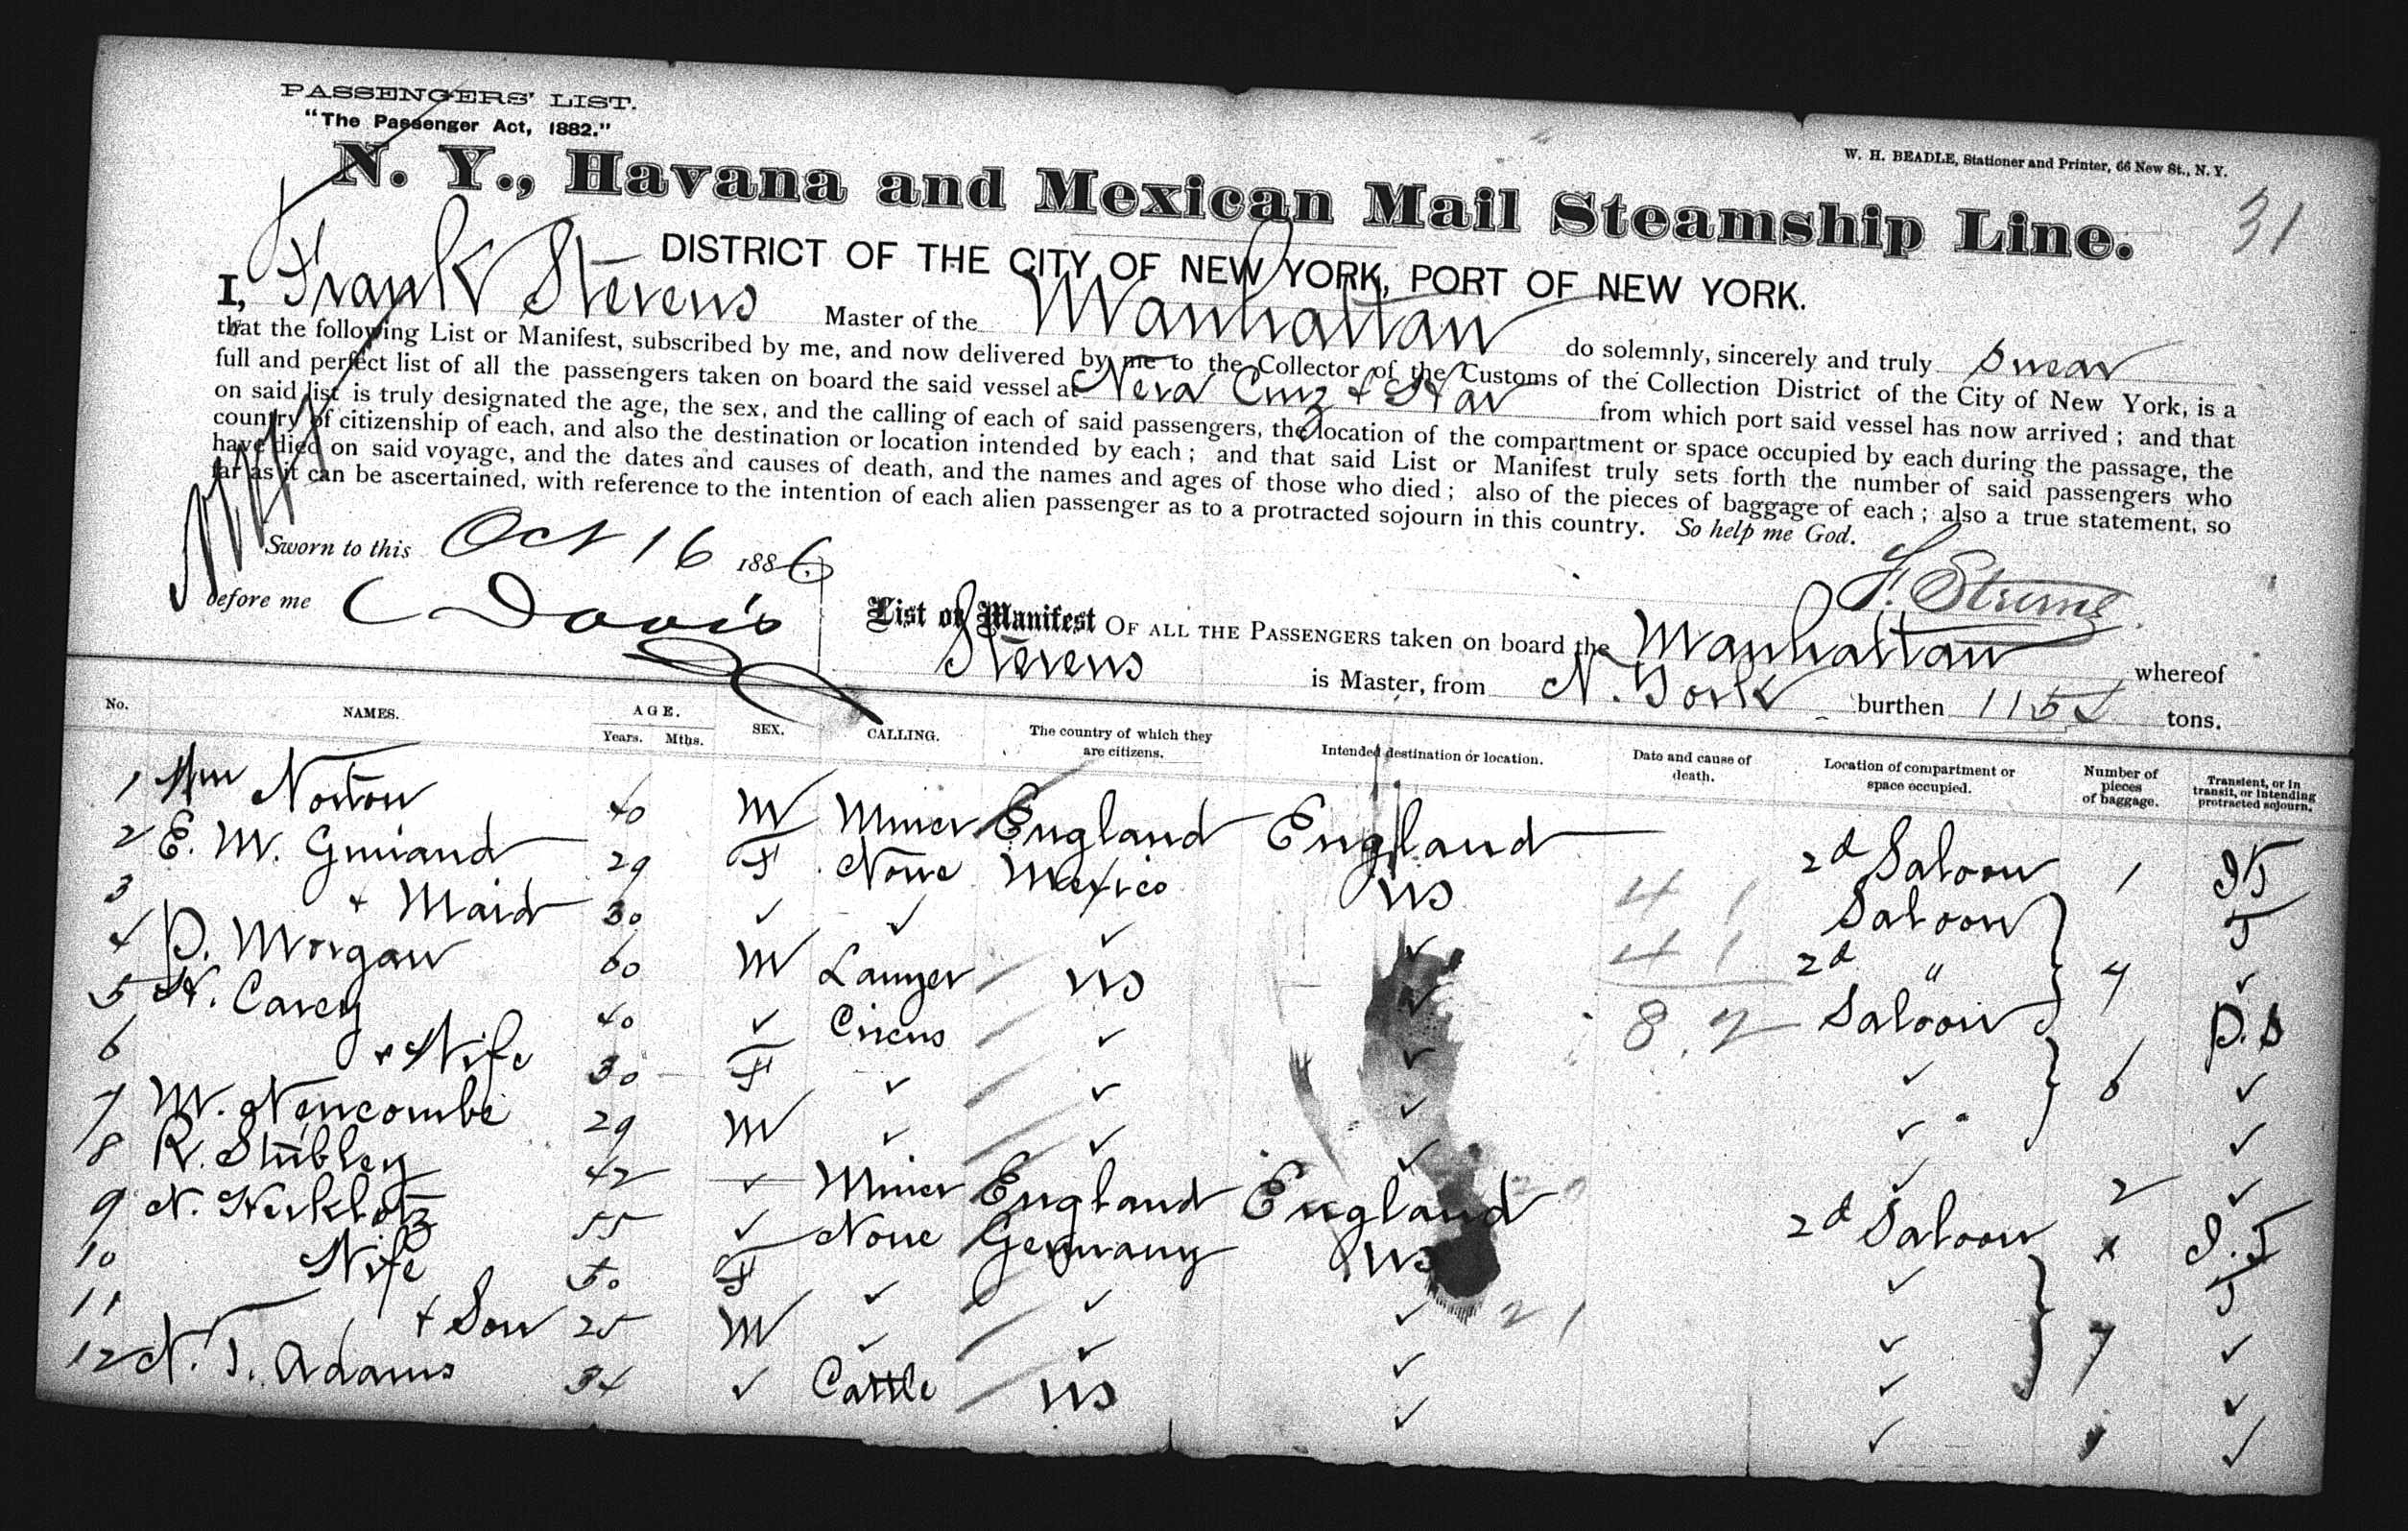 PASSENGERS' LIST.
"The Passenger Act, 1882."
W. H. BEADLE, Stationer and Printer, 66 New St., N. Y.
31
N. Y., Havana and Mexican Mail Steamship Line.
DISTRICT OF THE CITY OF NEW YORK, PORT OF NEW YORK.
I, Frank Stevens Master of the Manhattan do solemnly, sincerely and truly swear
that the following List or Manifest, subscribed by me, and now delivered by me to the Collector of the Customs of the Collection District of the City of New York, is a
full and perfect list of all the passengers taken on board the said vessel at Vera Cruz & Hav from which port said vessel has now arrived; and that
on said list is truly designated the age, the sex, and the calling of each of said passengers, the location of the compartment or space occupied by each during the passage, the
country of citizenship of each, and also the destination or location intended by each; and that said List or Manifest truly sets forth the number of said passengers who
have died on said voyage, and the dates and causes of death, and the names and ages of those who died; also of the pieces of baggage of each; also a true statement, so
far as it can be ascertained, with reference to the intention of each alien passenger as to a protracted sojourn in this country. So help me God.
Sworn to this Oct 16 1886
F. Stevens
before me C Davis
List or Manifest OF ALL THE PASSENGERS taken on board the Manhattan whereof
Stevens is Master, from N. York burthen 115 tons.
No. NAMES. AGE. Years. Mths. SEX. CALLING. The country of which they are citizens. Intended destination or location. Date and cause of death. Location of compartment or space occupied. Number of pieces of baggage. Transient, or in transit, or intending protracted sojourn.
1 Wm Norton 40 M Miner England England 2d Saloon 1 IT
2 E. M. 29 F None Mexico US 4 1 Saloon T
3 & Maid 30 ✓ ✓ ✓ ✓ 4 1 2d " 4 ✓
4 D. Morgan 60 M Lawyer US ✓ 8.2 Saloon P.S
5 H. Carey 40 ✓ Circus ✓ ✓ ✓ ✓
6 & Wife 30 F ✓ ✓ ✓ ✓ 6 ✓
7 W. Newcombe 29 M ✓ ✓ ✓ ✓ 2 ✓
8 R. Stubley 42 ✓ Miner England England 2d Saloon x I.T
9 N. 55 ✓ None Germany US ✓ T
10 Wife 50 F ✓ ✓ ✓ 21 ✓ 7 ✓
11 & Son 25 M ✓ ✓ ✓ ✓ ✓
12 N. T. Adams 34 ✓ Cattle US ✓ ✓ 1 ✓